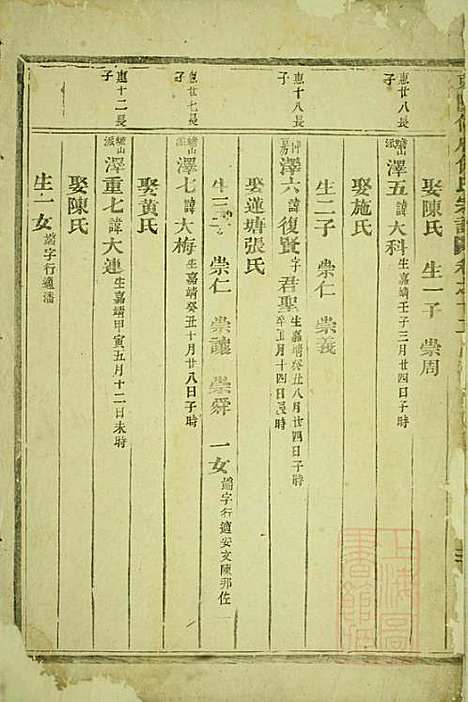 娶陳氏 生一子 崇周
惠廿八長子
澤五諱大科生嘉靖壬子三月廿四日子時
娶施氏
生二子 崇仁 崇義
惠十八長子
澤六諱復賢字君聖生嘉靖癸丑八月廿四日子時 正月十四日
娶蓮塘張氏
生三子 崇仁 崇讓 崇舜 一女 端字行適安文陳邦佐
惠廿七長子
澤七諱大梅生嘉靖癸丑十月廿八日子時
娶黃氏
惠十二長子
澤重七諱大連生嘉靖甲寅五月十二日未時
娶陳氏
生一女端字行適潘